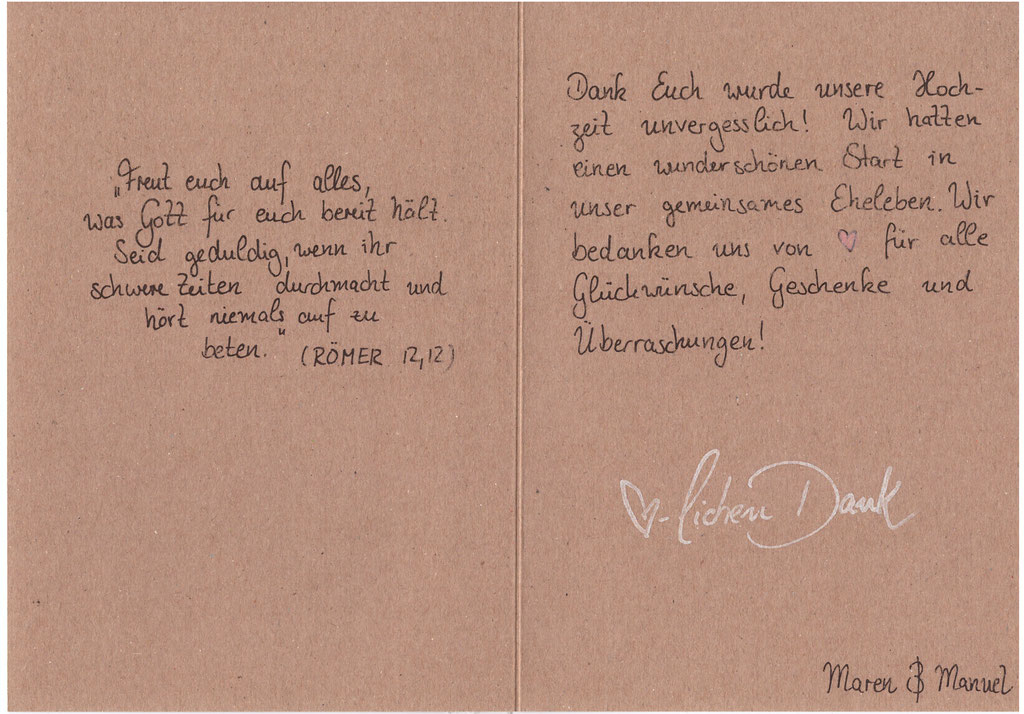 „Freut euch auf alles,
was Gott für euch bereit hält.
Seid geduldig, wenn ihr
schwere Zeiten durchmacht und
hört niemals auf zu
beten." (RÖMER 12,12)
Dank Euch wurde unsere Hoch-
zeit unvergesslich! Wir hatten
einen wunderschönen Start in
unser gemeinsames Eheleben. Wir
bedanken uns von ♡ für alle
Glückwünsche, Geschenke und
Überraschungen!
♡-lichen Dank
Maren & Manuel